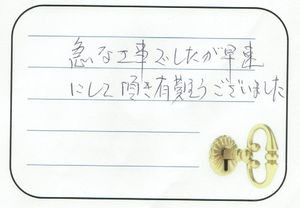 急な工事でしたが早速
にして頂き有難うございました